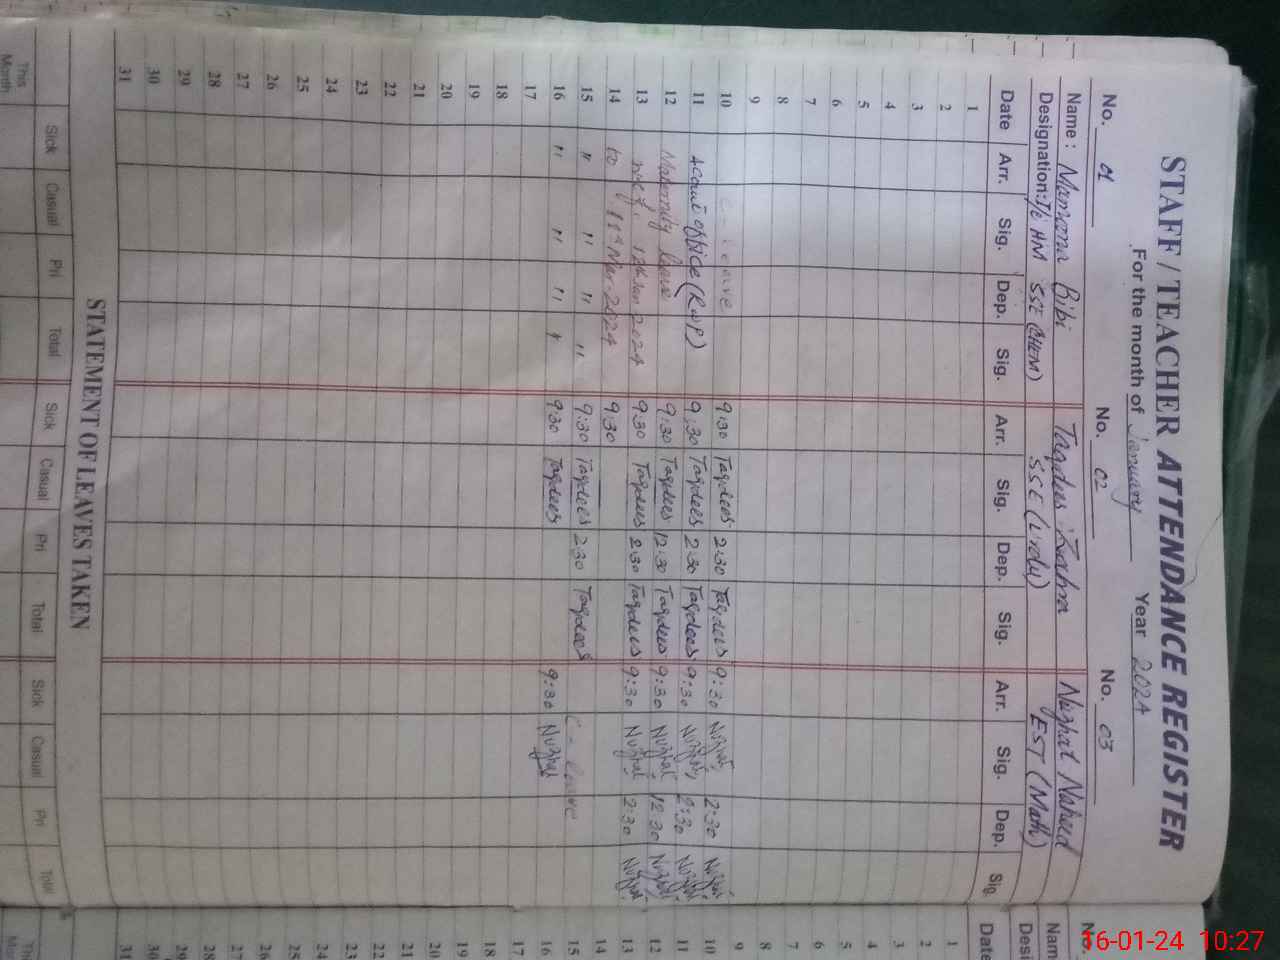 STAFF / TEACHER ATTENDANCE REGISTER
For the month of January Year 2024
No. 01 No. 02 No. 03 No.
Name : Mamona Bibi Taqdees Zahra Nuzhat Naheed Nam
Designation: I/c HM SSE (CHEM) SSE (Urdu) EST (Math) Desi
Date Arr. Sig. Dep. Sig. Arr. Sig. Dep. Sig. Arr. Sig. Dep. Sig. Date
1 1
2 2
3 3
4 4
5 5
6 6
7 7
8 8
9 9
10 C-leave 9:30 Taqdees 2:30 Taqdees 9:30 Nuzhat 2:30 Nuzhat 10
11 Acount office (RWP) 9:30 Taqdees 2:30 Taqdees 9:30 Nuzhat 2:30 Nuzhat 11
12 Maternity leave 9:30 Taqdees 12:30 Taqdees 9:30 Nuzhat 12:30 Nuzhat 12
13 w.e.f. 12th Jan 2024 9:30 Taqdees 2:30 Taqdees 9:30 Nuzhat 2:30 Nuzhat 13
14 to 11th Mar. 2024 9:30 14
15 " " " " 9:30 Taqdees 2:30 Taqdees C-leave 15
16 " " " " 9:30 Taqdees 9:30 Nuzhat 16
17 17
18 18
19 19
20 20
21 21
22 22
23 23
24 24
25 25
26 26
27 27
28 28
29 29
30 30
31 31
STATEMENT OF LEAVES TAKEN
Sick Casual Pri Total Sick Casual Pri Total Sick Casual Pri Total
This Month
16-01-24 10:27